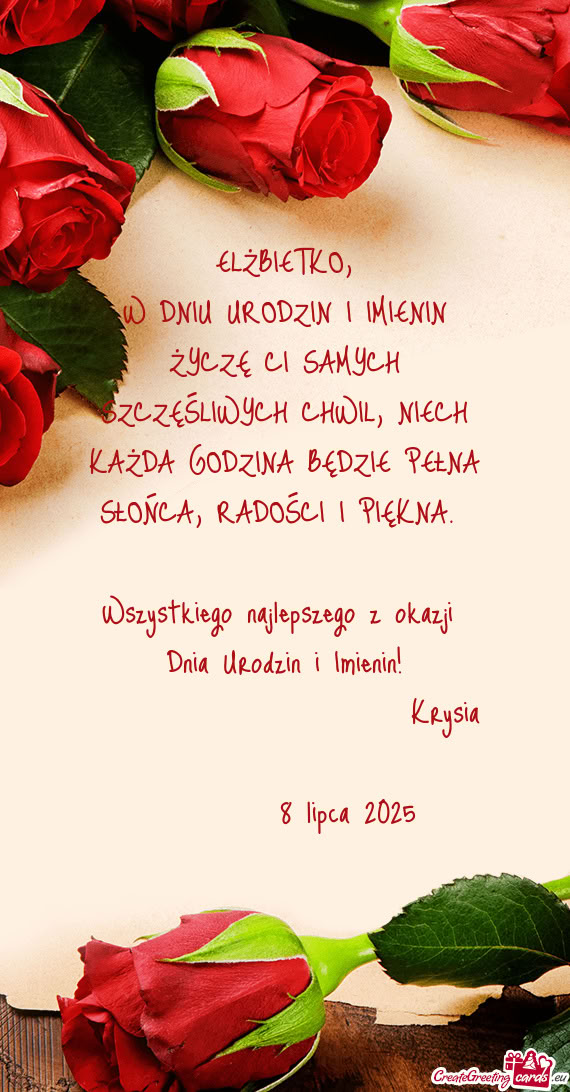 ELŻBIETKO,
W DNIU URODZIN I IMIENIN
ŻYCZĘ CI SAMYCH
SZCZĘŚLIWYCH CHWIL, NIECH
KAŻDA GODZINA BĘDZIE PEŁNA
SŁOŃCA, RADOŚCI I PIĘKNA.
Wszystkiego najlepszego z okazji
Dnia Urodzin i Imienin!
Krysia
8 lipca 2025
CreateGreetingcards.eu